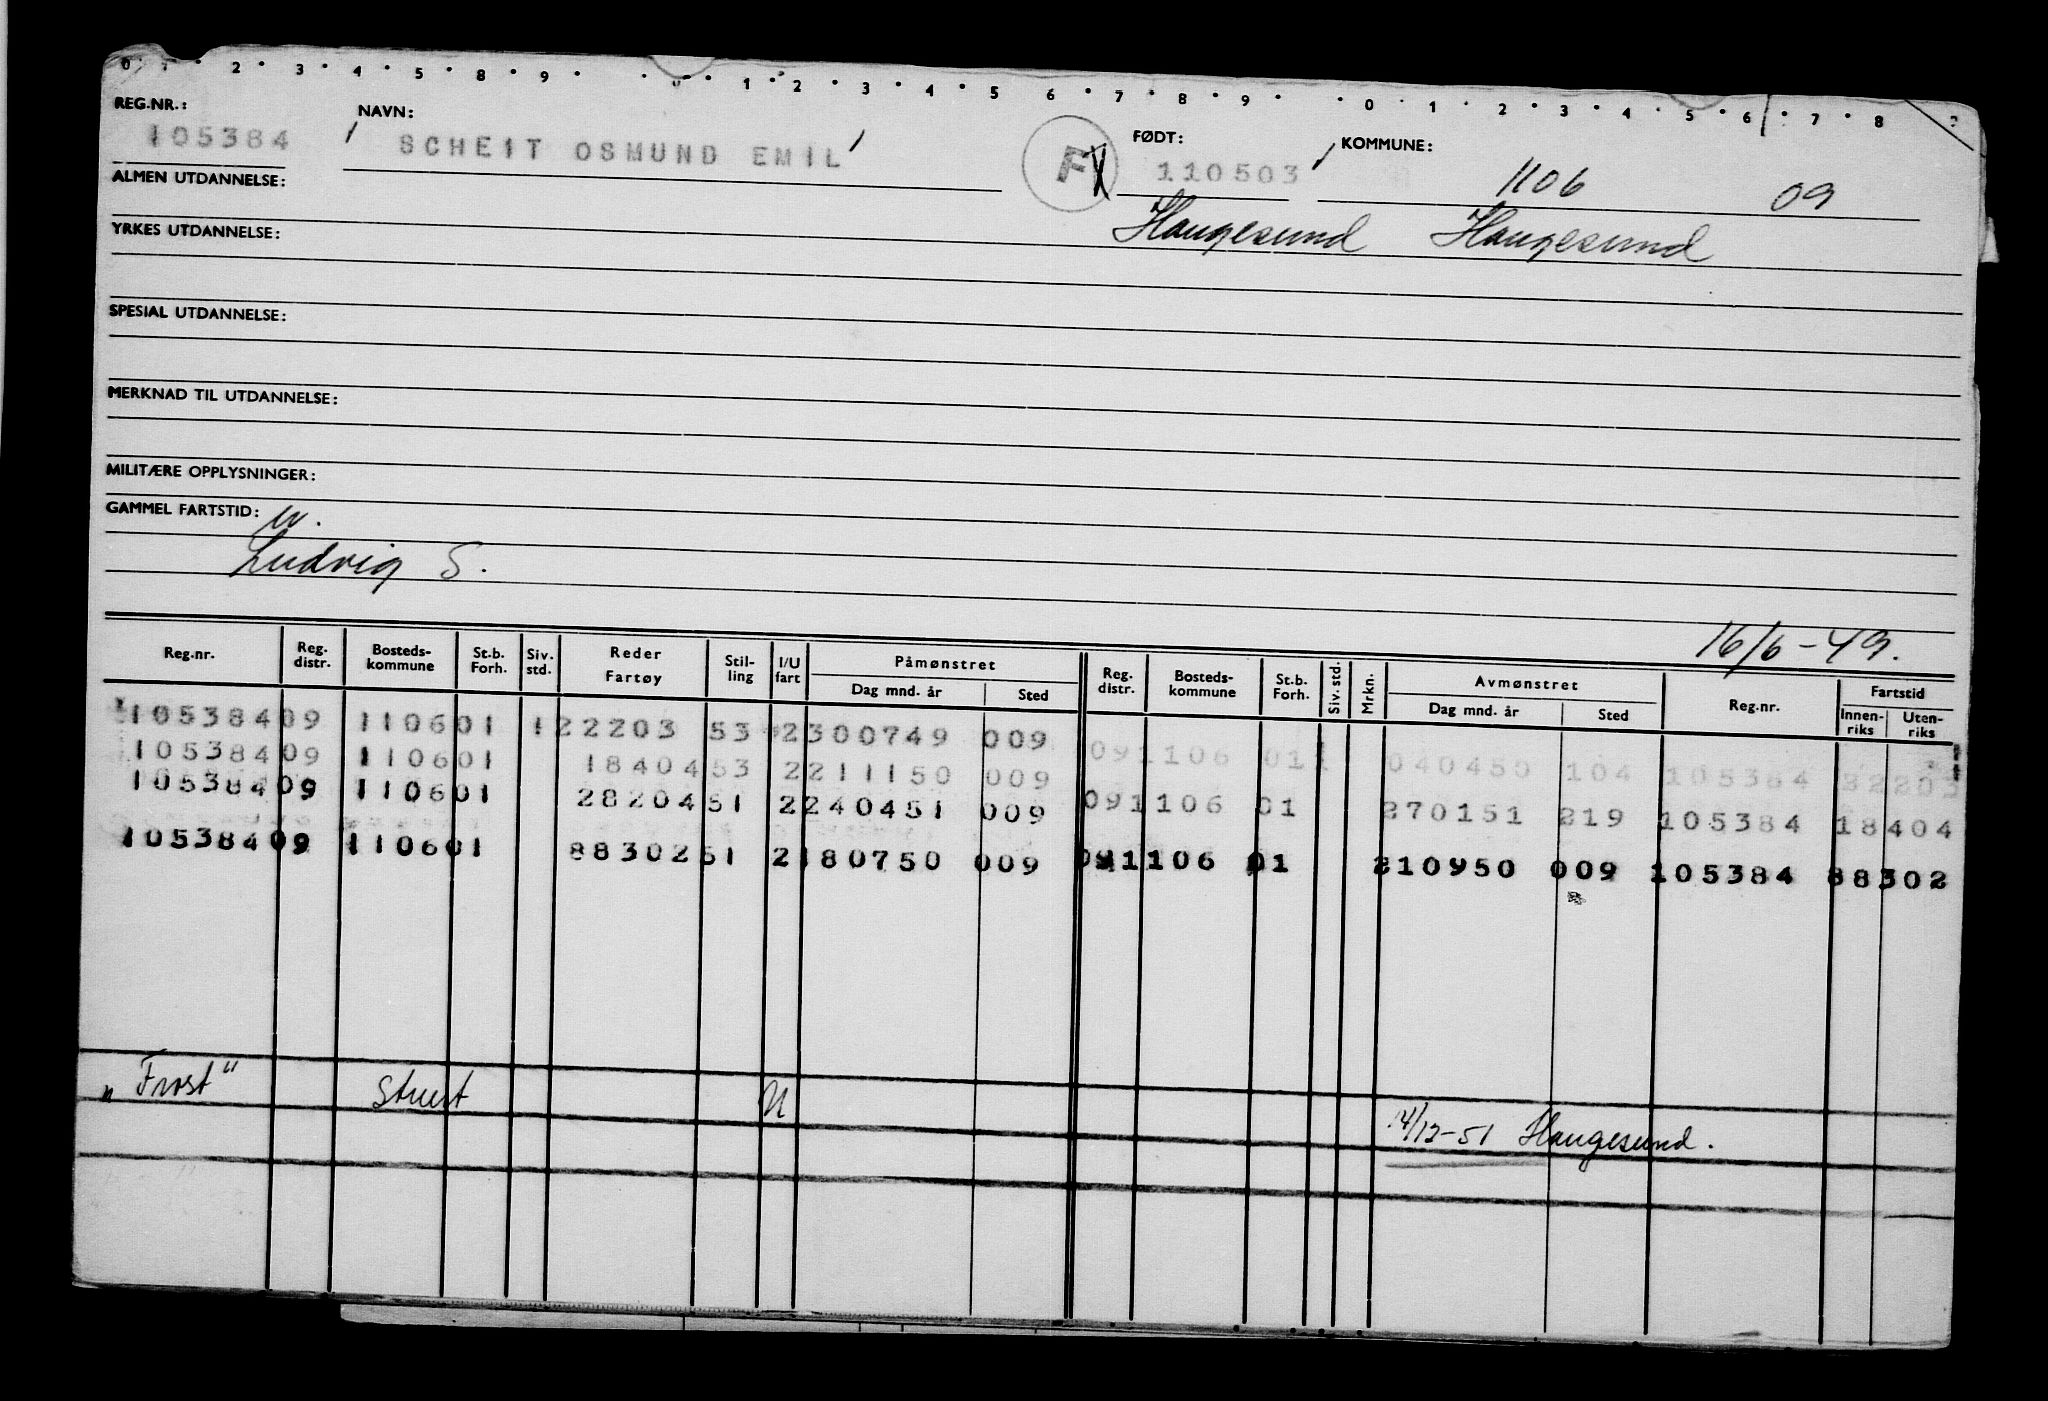 0 1 2 3 4 5 8 9 0 1 2 3 4 5 6 7 8 9 0 1 2 3 4 5 6 7 8
REG.NR.: NAVN: FØDT: KOMMUNE:
105384 SCHEIT OSMUND EMIL F 110503 1106 09
ALMEN UTDANNELSE:
Haugesund Haugesund
YRKES UTDANNELSE:
SPESIAL UTDANNELSE:
MERKNAD TIL UTDANNELSE:
MILITÆRE OPPLYSNINGER:
GAMMEL FARTSTID:
Ludvig S.
16/6-49.
Reg.nr. Reg. distr. Bosteds-kommune St.b. Forh. Siv. std. Reder Fartøy Stil-ling I/U fart Påmønstret Dag mnd. år Sted Reg. distr. Bosteds-kommune St.b. Forh. Siv. std. Mrkn. Avmønstret Dag mnd. år Sted Reg.nr. Fartstid Innen-riks Uten-riks
105384 09 1106 01 1 22203 53 2 300749 009
091106 01 1 040450 104 105384 22203
105384 09 1106 01 18404 53 2 211150 009
091106 01 270151 219 105384 18404
105384 09 1106 01 28204 51 2 240451 009
105384 09 1106 01 88302 51 2 180750 009 091106 01 210950 009 105384 88302
„Frost" Stuert U
14/12-51 Haugesund.